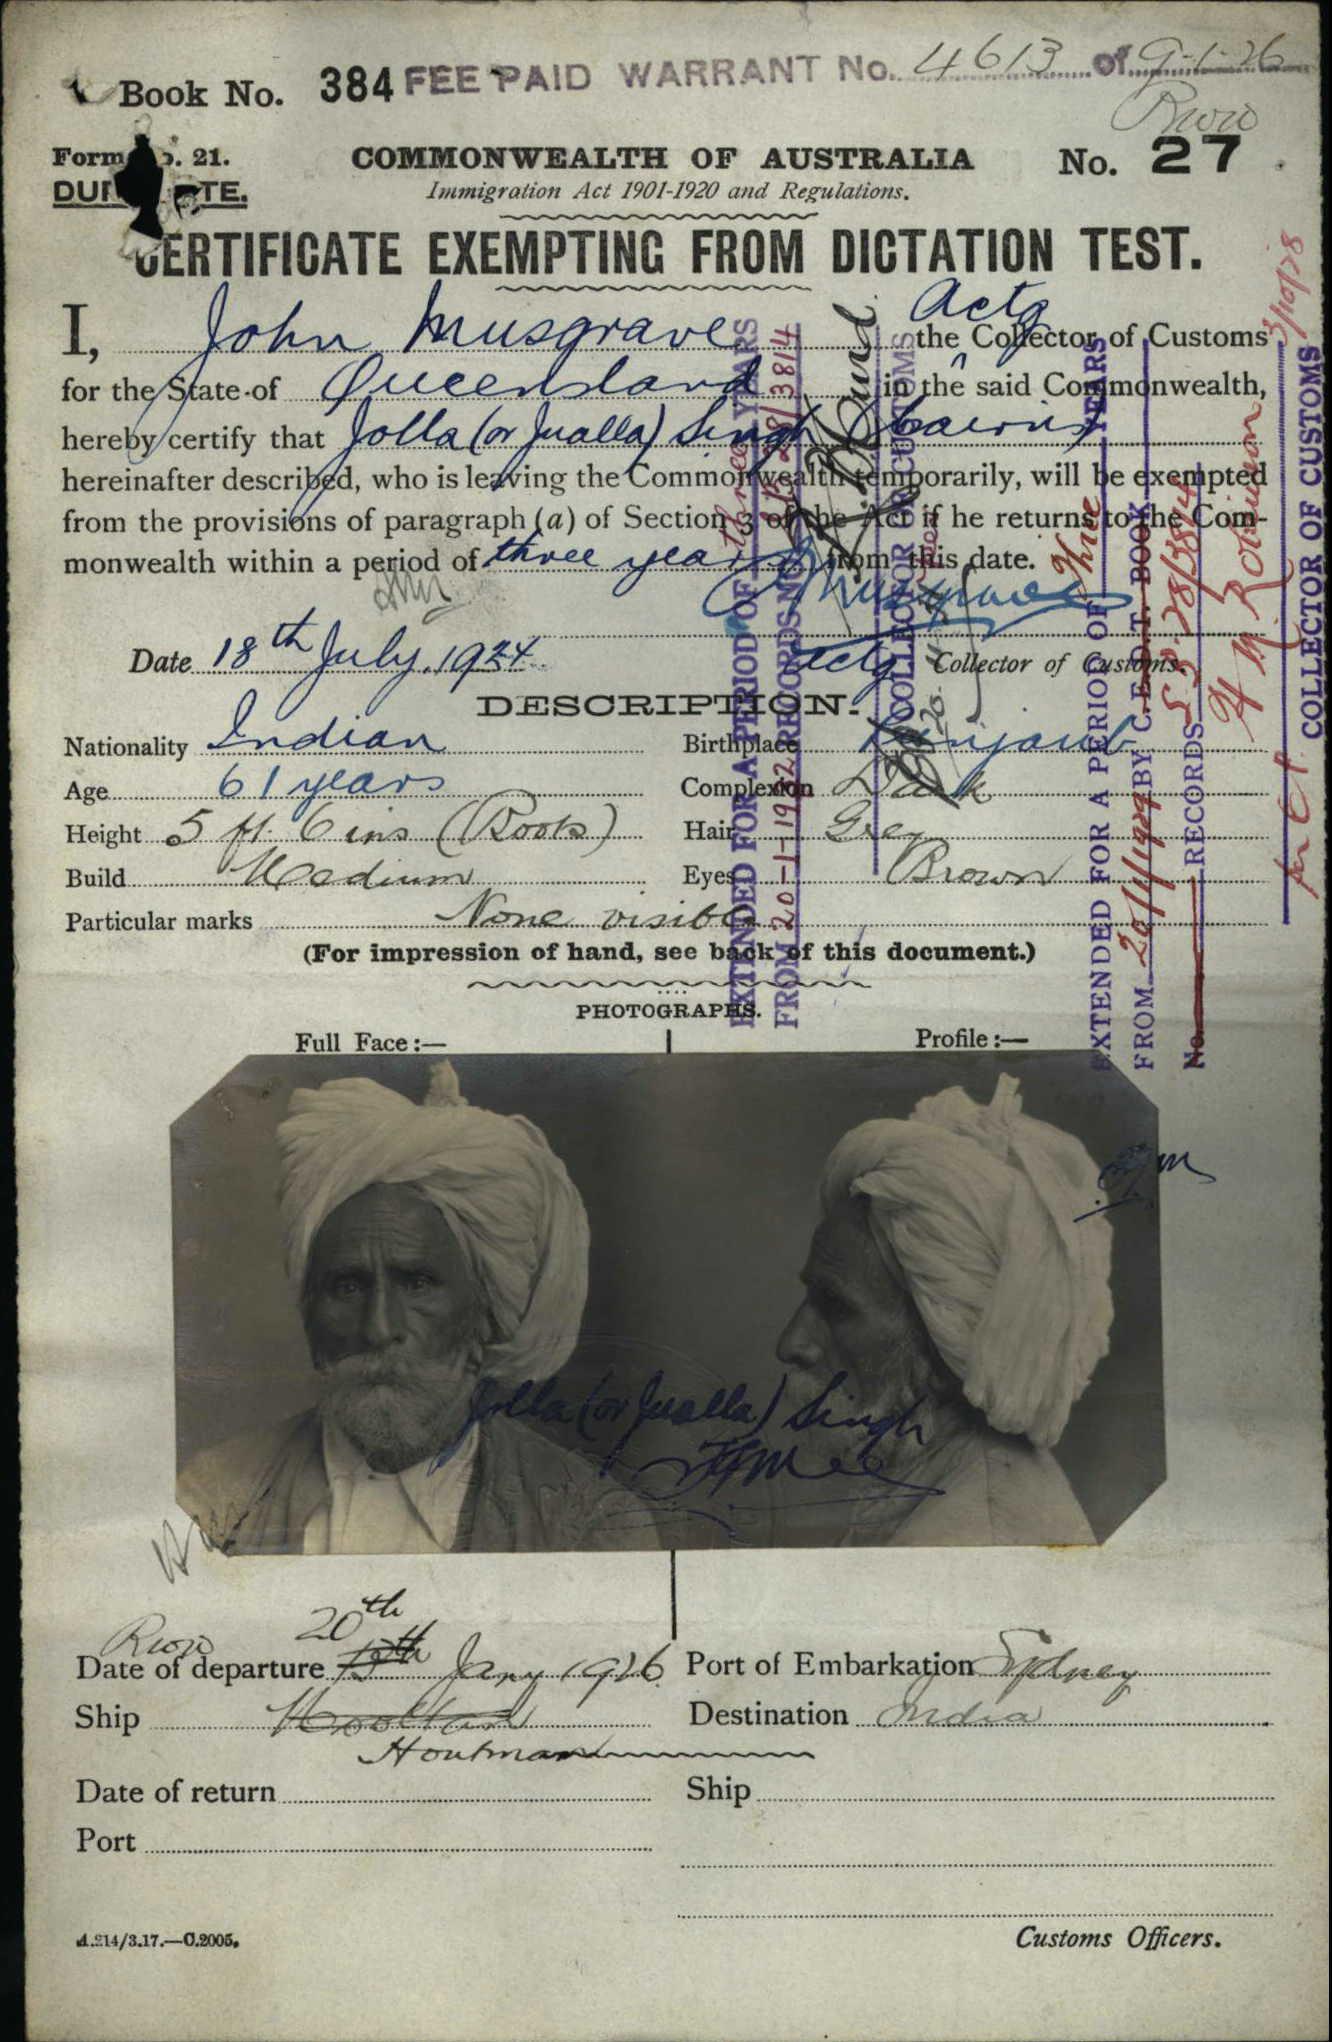 Book No. 384 FEE PAID WARRANT No. 4613 of 9-1-26
Form No. 21.
COMMONWEALTH OF AUSTRALIA
No. 27
DUPLICATE.
Immigration Act 1901-1920 and Regulations.
CERTIFICATE EXEMPTING FROM DICTATION TEST.
I, John Musgrave Actg the Collector of Customs
for the State of Queensland in the said Commonwealth,
hereby certify that Jolla (or Jualla) Singh (Cairns)
hereinafter described, who is leaving the Commonwealth temporarily, will be exempted
from the provisions of paragraph (a) of Section 3 of the Act if he returns to the Com-
monwealth within a period of three years from this date.
J Musgrave
Date 18th July 1924 Actg Collector of Customs.
DESCRIPTION.
Nationality Indian Birthplace Punjaub
Age 61 years Complexion Dark
Height 5 ft. 6 ins (Boots) Hair Grey
Build Medium Eyes Brown
Particular marks None visible
(For impression of hand, see back of this document.)
EXTENDED FOR A PERIOD OF three YEARS
FROM 20-1-1932 RECORDS No. 28/3814
COLLECTOR OF CUSTOMS
EXTENDED FOR A PERIOD OF Three YEARS
FROM 20/1/1929 BY C.E.D.T. BOOK
No. RECORDS 28/3814
H M Robinson
3/10/28
COLLECTOR OF CUSTOMS
PHOTOGRAPHS.
Full Face:— Profile:—
Jolla (or Jualla) Singh
20th
Date of departure 13th Jany 1926 Port of Embarkation Sydney
Ship Mooltan Destination India
Houtman
Date of return Ship
Port
A.214/3.17.—C.2005. Customs Officers.